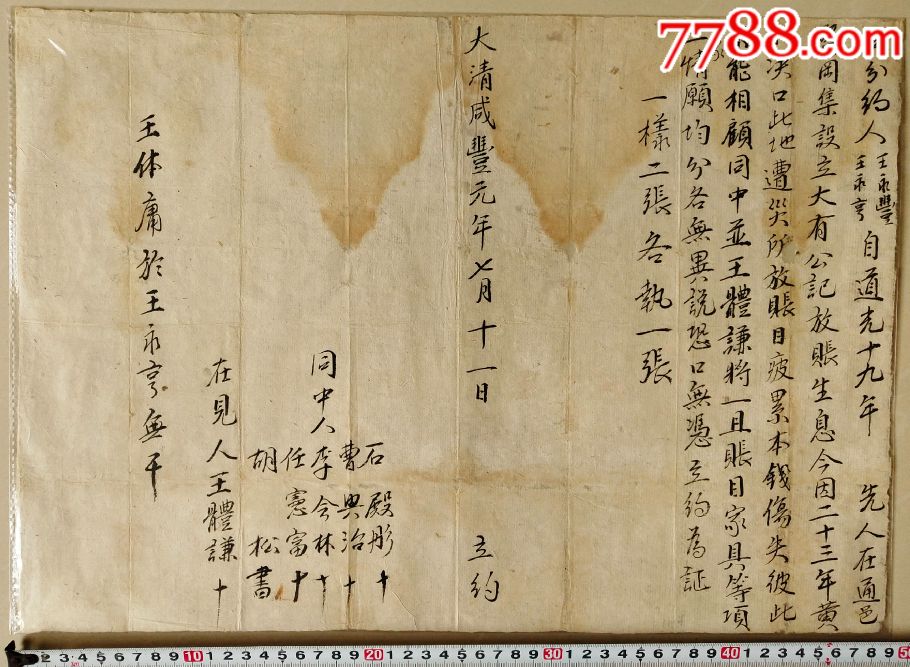 7788.com
分約人王永豐王永亨自道光十九年 先人在通邑
岡集設立大有公記放賬生息今因二十三年黃
決口此地遭災所放賬目疲累本錢傷失彼此
能相顧同中並王體謙將一且賬目家具等項
情願均分各無異説恐口無憑立約為証
一樣二張各執一張
大清咸豐元年七月十一日 立約
石殿彤十
曹興治十
同中人李会林十
任憲富十
胡松書
在見人王體謙十
王体庸於王永亨無干
2 3 4 5 6 7 8 9 10 1 2 3 4 5 6 7 8 9 20 1 2 3 4 5 6 7 8 9 30 1 2 3 4 5 6 7 8 9 40 1 2 3 4 5 6 7 8 9 50